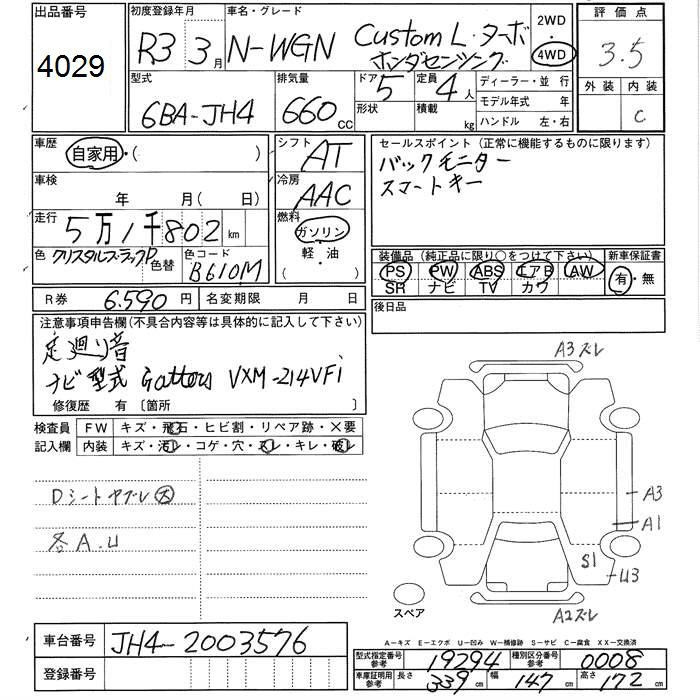 出品番号 4029
初度登録年月 R3 3月
車名・グレード N-WGN Custom L・ターボ
ホンダセンシング
2WD
4WD
評価点 3.5
外装 内装 C
型式 6BA-JH4
排気量 660 CC
ドア 5 形状
定員 4人 積載 kg
ディーラー・並行
モデル年式 年
ハンドル 左・右
車歴 自家用・( )
シフト AT
車検 年 月( 日)
冷房 AAC
走行 5万1千802km
燃料 ガソリン 軽・油 ( )
色 クリスタルブラックP 色替
色コード B610M
セールスポイント(正常に機能するものに限ります)
バックモニター
スマートキー
装備品(純正品に限り○をつけて下さい)
PS PW ABS エアB AW
SR ナビ TV カワ
新車保証書 有・無
R券 6.590円
名変期限 月 日
後日品
注意事項申告欄(不具合内容等は具体的に記入して下さい)
足廻り音
ナビ型式 Gathers VXM-214VFi
修復歴 有 〔箇所 〕
検査員 FW キズ・飛石・ヒビ割・リペア跡・×要
記入欄 内装 キズ・汚レ・コゲ・穴・スレ・キレ・破レ
Dシートヤブレ大
各A.U
A3ズレ
A3
A1
S1
U3
A2ズレ
スペア
A-キズ E-エクボ U-凹み W-補修跡 S-サビ C-腐食 XX-交換済
車台番号 JH4-2003576
登録番号
型式指定番号 参考 19294
種別区分番号 参考 0008
車庫証明用 参考 長さ 339cm 幅 147cm 高さ 172cm